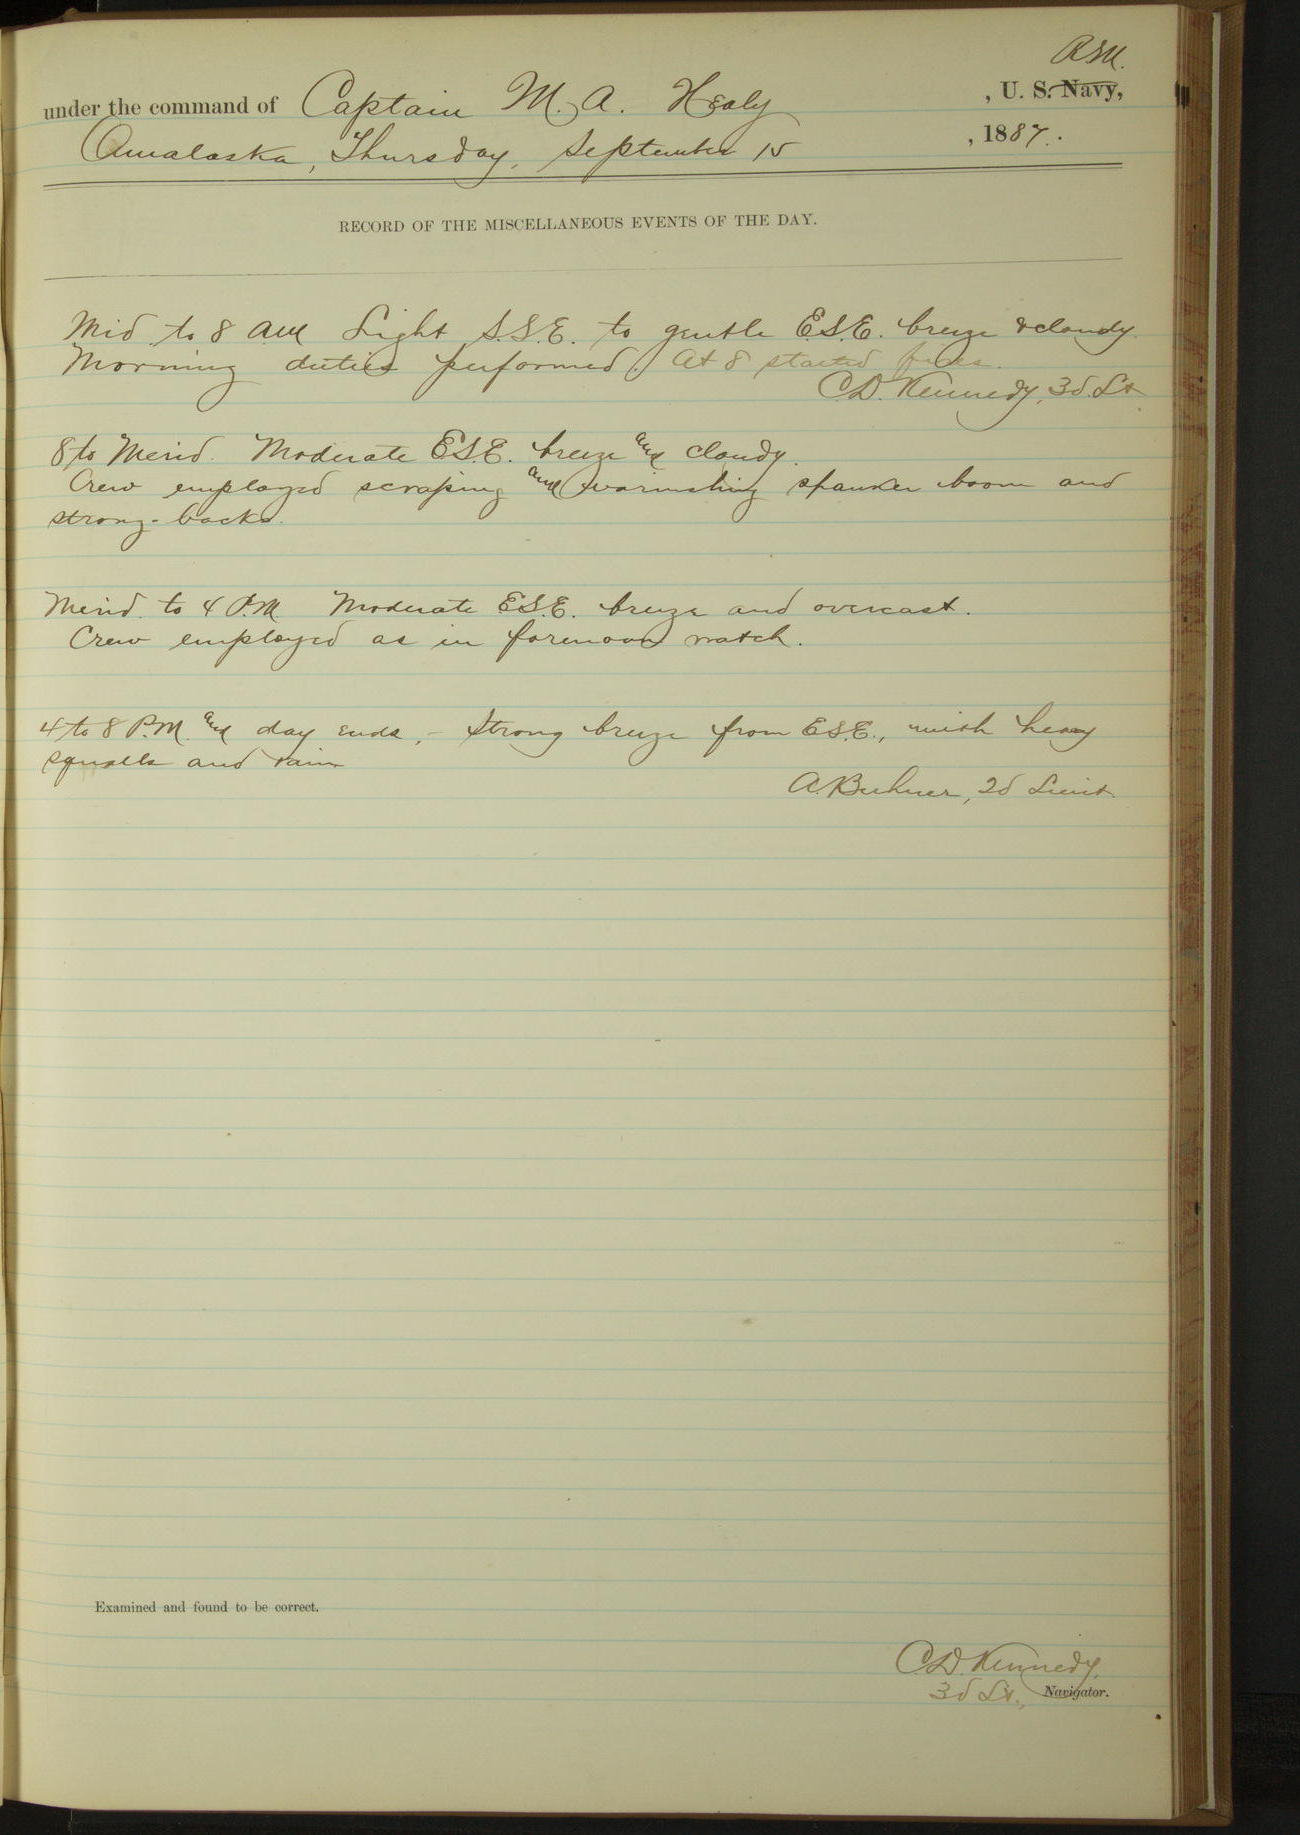 R.M.
under the command of Captain M. A. Healy , U. S. Navy,
Ounalaska, Thursday, September 15 , 1887.
RECORD OF THE MISCELLANEOUS EVENTS OF THE DAY.
Mid. to 8 am Light S.S.E. to gentle E.S.E. breeze & cloudy.
Morning duties performed. At 8 started fires.
C.D. Kennedy, 3d. Lt.
8 to Merid. Moderate E.S.E. breeze and cloudy.
Crew employed scraping and varnishing spanker boom and
strong-backs.
Merid. to 4 P.M. Moderate E.S.E. breeze and overcast.
Crew employed as in forenoon watch.
4 to 8 P.M. and day ends, - Strong breeze from E.S.E., with heavy
squalls and rain
A. Buhner, 2d Lieut.
Examined and found to be correct.
C.D. Kennedy,
3d Lt., Navigator.